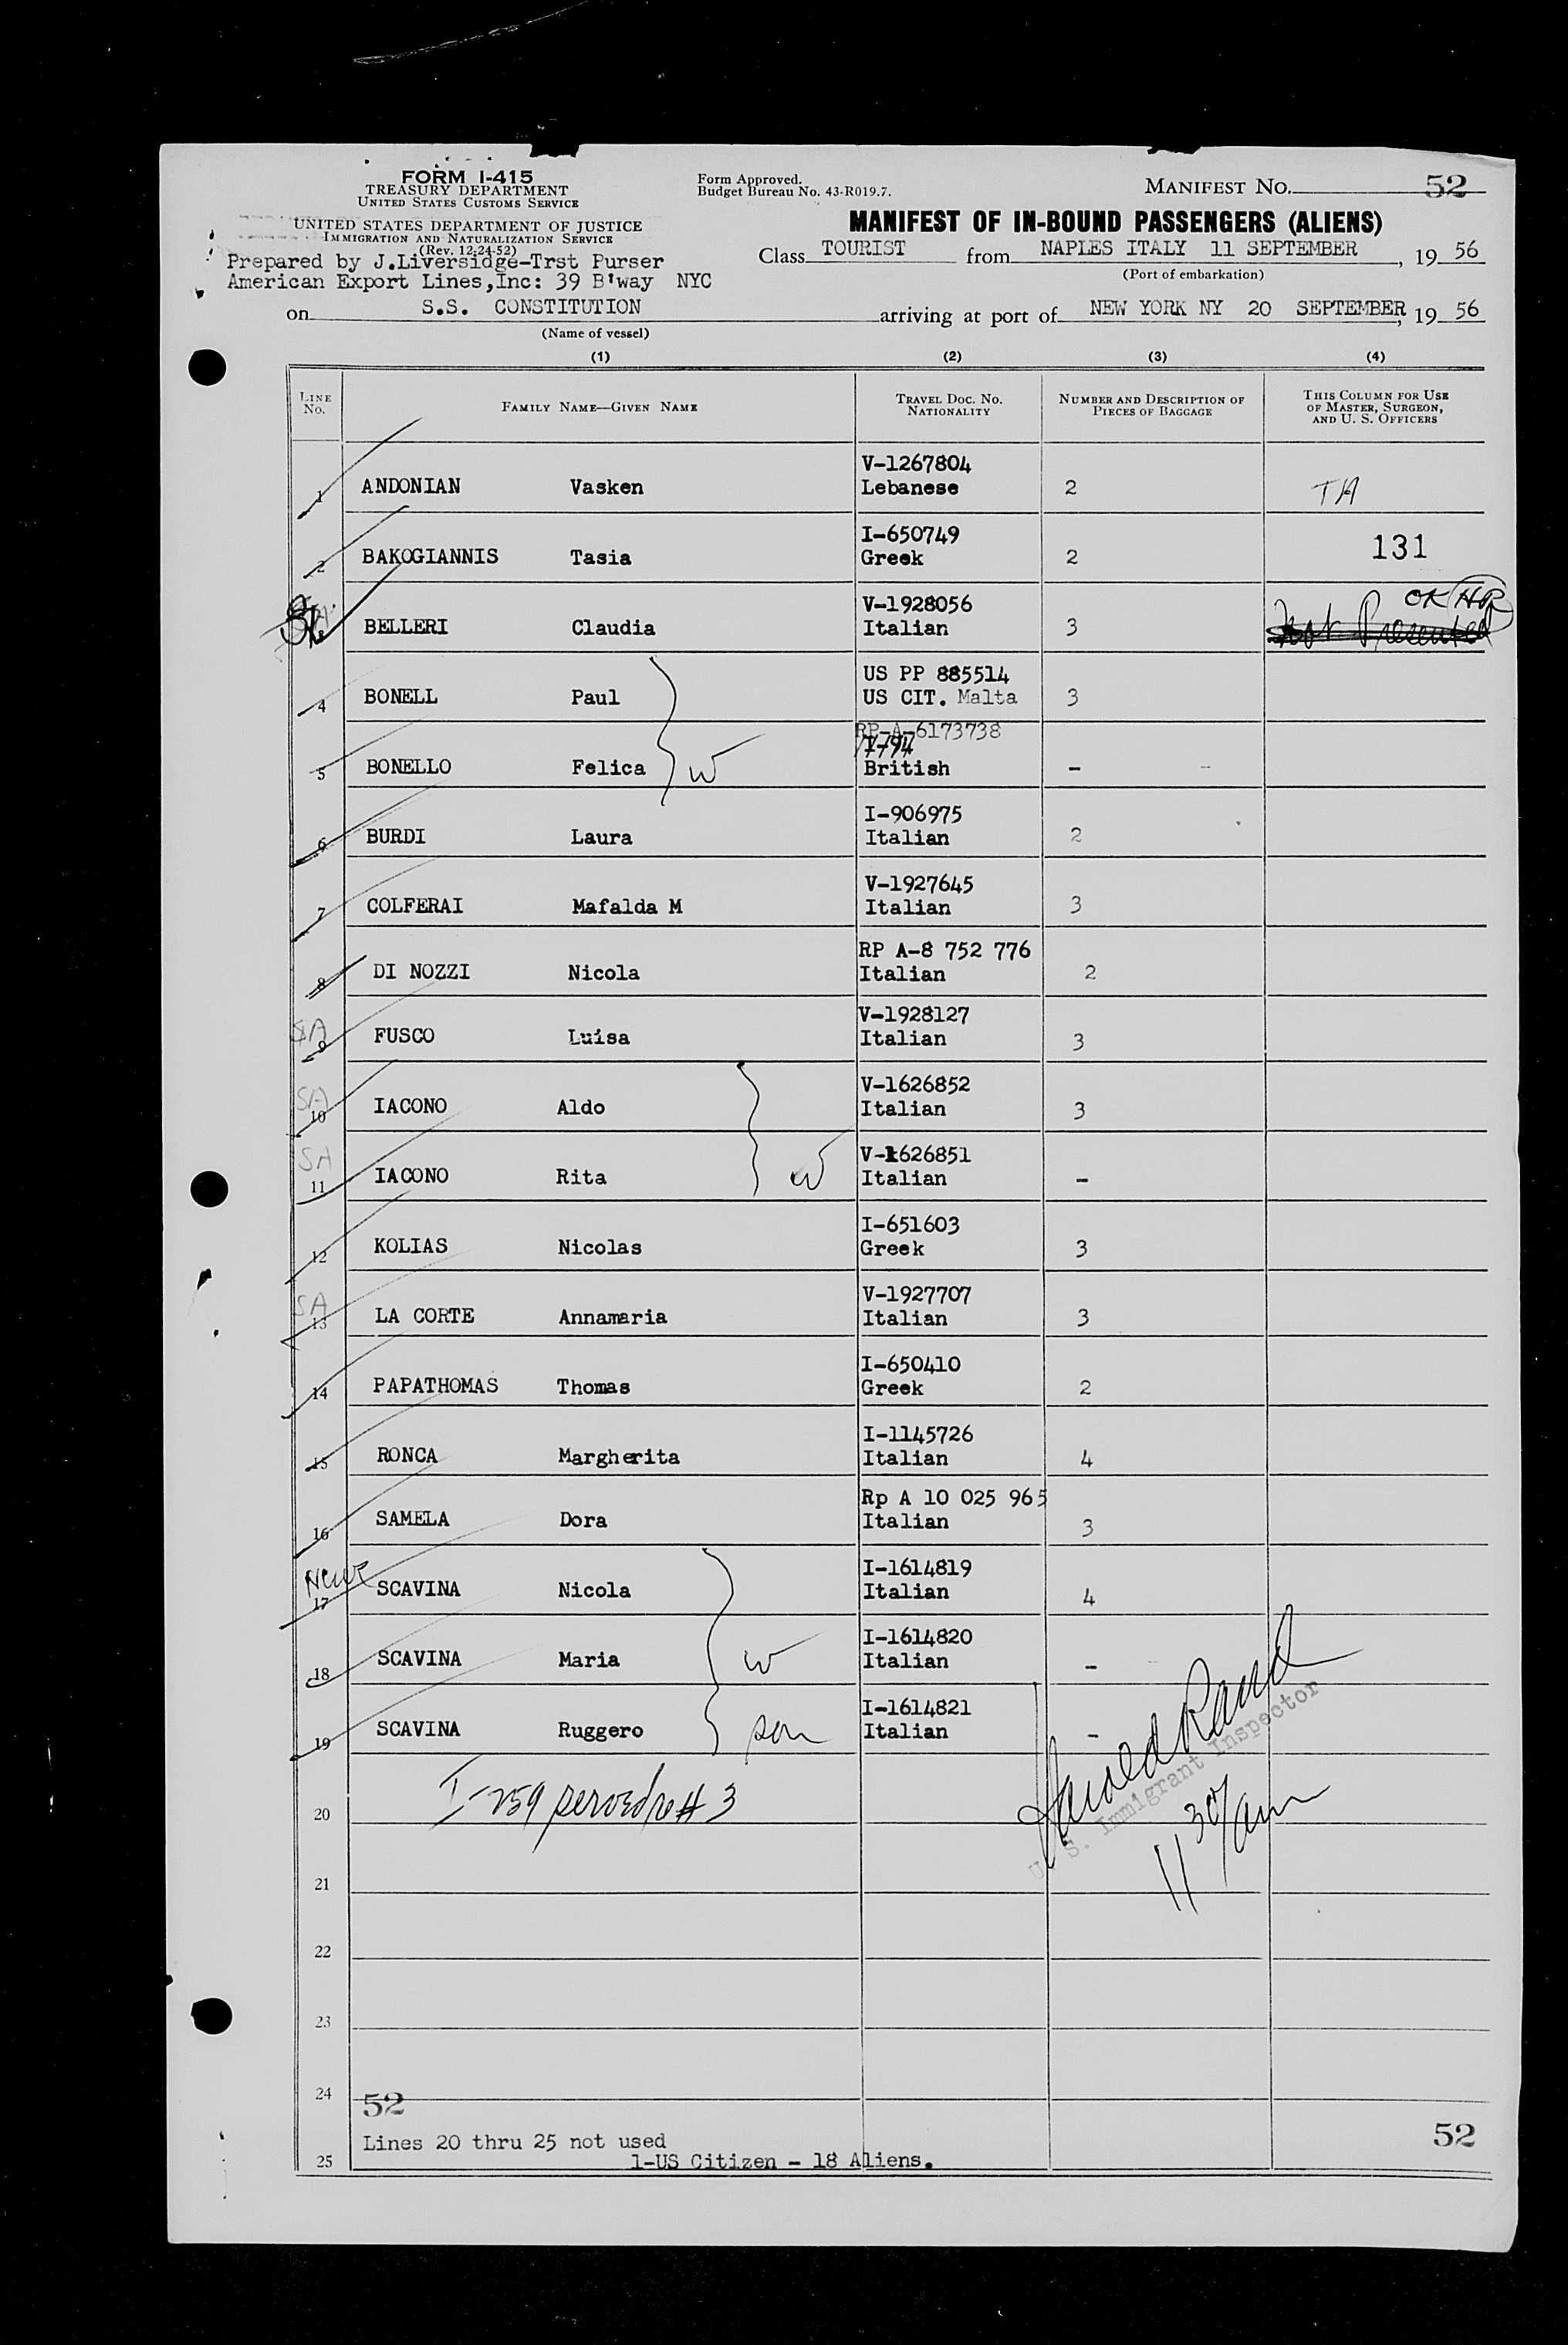 FORM I-415
TREASURY DEPARTMENT
UNITED STATES CUSTOMS SERVICE
UNITED STATES DEPARTMENT OF JUSTICE
IMMIGRATION AND NATURALIZATION SERVICE
(Rev. 12-24-52)
Prepared by J.Liversidge-Trst Purser
American Export Lines,Inc: 39 B'way NYC
Form Approved.
Budget Bureau No. 43-R019.7.
MANIFEST NO. 52
MANIFEST OF IN-BOUND PASSENGERS (ALIENS)
Class TOURIST from NAPLES ITALY 11 SEPTEMBER, 19 56
(Port of embarkation)
on S.S. CONSTITUTION arriving at port of NEW YORK NY 20 SEPTEMBER, 19 56
(Name of vessel)
(1) (2) (3) (4)
LINE NO. FAMILY NAME—GIVEN NAME TRAVEL DOC. NO. NATIONALITY NUMBER AND DESCRIPTION OF PIECES OF BAGGAGE THIS COLUMN FOR USE OF MASTER, SURGEON, AND U. S. OFFICERS
1 ANDONIAN Vasken V-1267804 Lebanese 2 TA
2 BAKOGIANNIS Tasia I-650749 Greek 2 131
BELLERI Claudia V-1928056 Italian 3 Not Presented OK HR
4 BONELL Paul US PP 885514 US CIT. Malta 3
5 BONELLO Felica W RP-A-6173738 I-94 British - -
6 BURDI Laura I-906975 Italian 2
7 COLFERAI Mafalda M V-1927645 Italian 3
8 DI NOZZI Nicola RP A-8 752 776 Italian 2
SA 9 FUSCO Luisa V-1928127 Italian 3
SA 10 IACONO Aldo V-1626852 Italian 3
SA 11 IACONO Rita W V-1626851 Italian -
12 KOLIAS Nicolas I-651603 Greek 3
SA 13 LA CORTE Annamaria V-1927707 Italian 3
14 PAPATHOMAS Thomas I-650410 Greek 2
15 RONCA Margherita I-1145726 Italian 4
16 SAMELA Dora Rp A 10 025 965 Italian 3
17 SCAVINA Nicola I-1614819 Italian 4
18 SCAVINA Maria W I-1614820 Italian -
19 SCAVINA Ruggero son I-1614821 Italian -
Harold Rand
U. S. Immigrant Inspector
11 30/am
20 I-259 served re # 3
21
22
23
24 52
Lines 20 thru 25 not used 52
25 1-US Citizen - 18 Aliens.